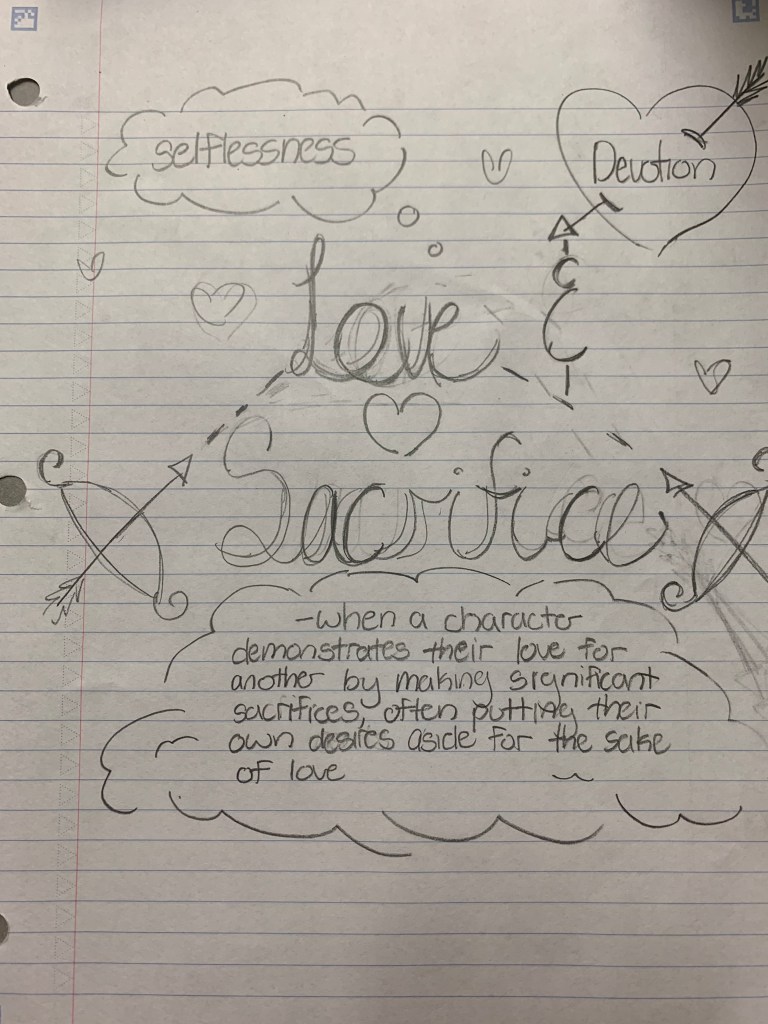 selflessness
Devotion
Love
Sacrifice
-when a character
demonstrates their love for
another by making significant
sacrifices, often putting their
own desires aside for the sake
of love